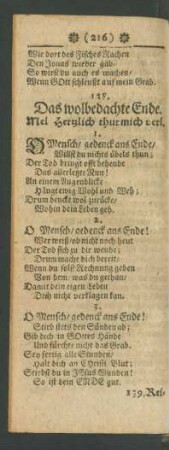 (216)
Wie dort des Fisches Rachen
Den Jonas wieder gab.
So wirst du auch es machen/
Wenn GOtt schleußt auf mein Grab.
Das wolbedachte Ende.
Mel. Hertzlich thut mich verl.
1.
O Mensch/ gedenck ans Ende/
Willst du nichts übels thun;
Der Tod bringt offt behende
Das allerletzte Nun!
An einem Augenblicke
Hängt ewig Wohl und Weh;
Drum denckt wol zurücke/
Wohin dein Leben geh.
2.
O Mensch/ gedenck ans Ende!
Wer weiß/ ob nicht noch heut
Der Tod sich zu dir wende;
Drum mache dich bereit;
Wenn du solst Rechnung geben
Von dem/ was du gethan/
Damit dein eigen Leben
Dich nicht verklagen kan.
3.
O Mensch/ gedenck ans Ende!
Stirb stets den Sünden ab;
Gib dich in GOttes Hände
Und fürchte nicht das Grab.
Sey fertig alle Stunden/
Halt dich an Christi Blut;
Stirbst du in JEsus Wunden!
So ist dein ENDE gut.
139. Rei-